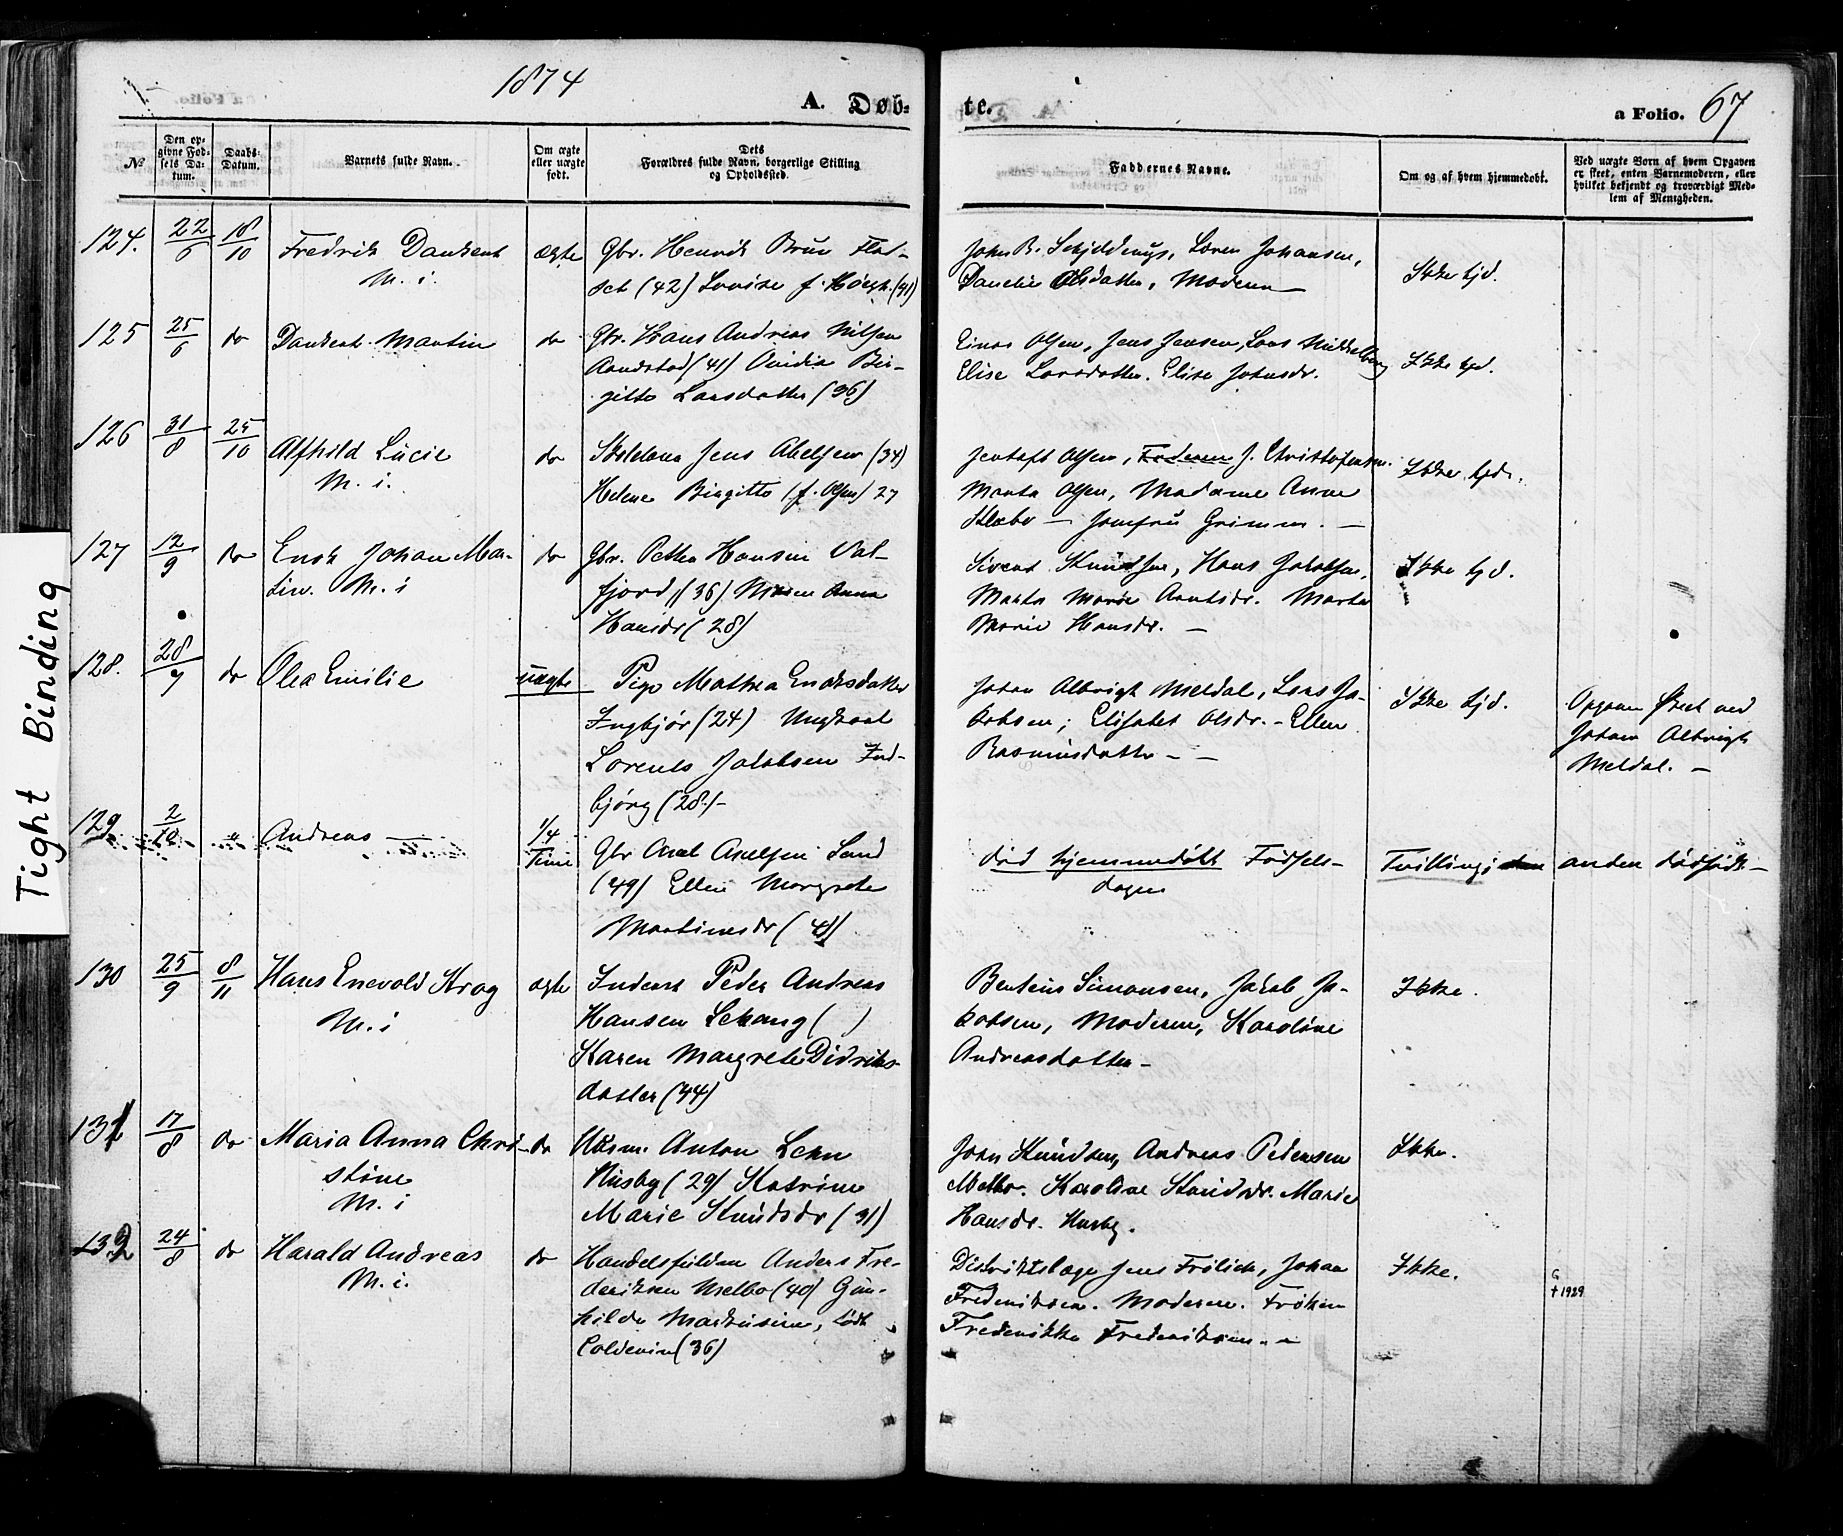 1874
A. Døb-
te.
a Folio. 67
№
Den op-
givne Fød-
sels Da-
tum.
Daabs-
Datum.
Barnets fulde Navn.
Om ægte
eller uægte
født.
Dets
Forældres fulde Navn, borgerlige Stilling
og Opholdssted.
Faddernes Navne.
Om og af hvem hjemmedøbt.
Ved uægte Børn af hvem Opgaven
er skeet, enten Barnemoderen, eller
hvilket bekjendt og troværdigt Med-
lem af Menigheden.
124. 22/6 18/10 Fredrik Dankert
M. i.
ægte
Gbr. Henrik Brun Flat-
set (42) Lovise f. (41)
John B. Schjelderup, Søren Johansen,
Danelie Olsdatter, Moderen —
Ikke hjd.
125 25/6 do Dankert Martin do
Gbr. Hans Andreas Nilsen
(41) Ovidia Bir-
gitte Larsdatter (36)
Einar Olsen, Jens Jensen, Lars
Elise Larsdatter. Elise Johnsdr.
Ikke hjd.
126 31/8 25/10 Alfhild Lúcie
M. i.
do
Jens Abelsen (34)
Helene Birgitte (f. Olsen) 27
Jentoft Olsen, Faderen J. Christofersen.
Marta Olsen, Madame Anne
Klæbo — Jomfrú Grimm. —
Ikke hjd.
127 12/9 do Enok Johan Mar-
tin. M. i
do
Gbr. Petter Hansen Val-
fjord, (36) Anna
Hansdr (28)
Sivert Knúdsen, Hans Jakobsen,
Marta Marie Arntsdr. Marta
Marie Hansdr. —
Ikke hjd.
128. 28/7 do Olea Emilie uægte
Pige Mathea Endresdatter
Ingbjør (24) Ungkarl
Lorents Jakobsen Ind-
bjørg (28.)-
Johan Albrigt Meldal, Lars Ja-
kobsen; Elisabet Olsdr. - Ellen
Rasmúsdatter - -
Ikke hjd.
Opgaven skeet ved
Johan Albrigt
Meldal. —
129. 2/10 " Andreas —
1/4
Time
Gbr Axel Axelsen Sand
(49) Ellen Margrete
Martinesdr (41)
død hjemmedøbt Fødsels-
dagen
Tvilling; den anden dødfødt. —
130 25/9 8/11 Hans Enevold Krog
M. i
ægte
Inderst Peder Andreas
Hansen Lekang ( )
Karen Margrete Didriks-
datter (44)
Benteús Simonsen, Jakob Ja-
kobsen, Moderen, Karoline
Andreasdatter —
Ikke.
131 17/8 do Maria Anna Chri-
stine
M. i
do
Anton Lehn
Húsby (29) Katrine
Marie Knúdsdr (31)
John Knúdsen, Andreas Pedersen
Melbo. Karoline Knúdsdr. Marie
Hansdr. Husby.
Ikke.
132 24/8 do Harald Andreas
M. i.
do
Handelsfuldm Anders Fre-
deriksen Melbo (40) Gún-
hilde Markúsine, født
Coldevin (36)
Distriktslæge Jens Frölich, Johan
Frederiksen. Moderen. Frøken
Frederikke Frederiksen. —
Ikke.
† 1929
Tight Binding